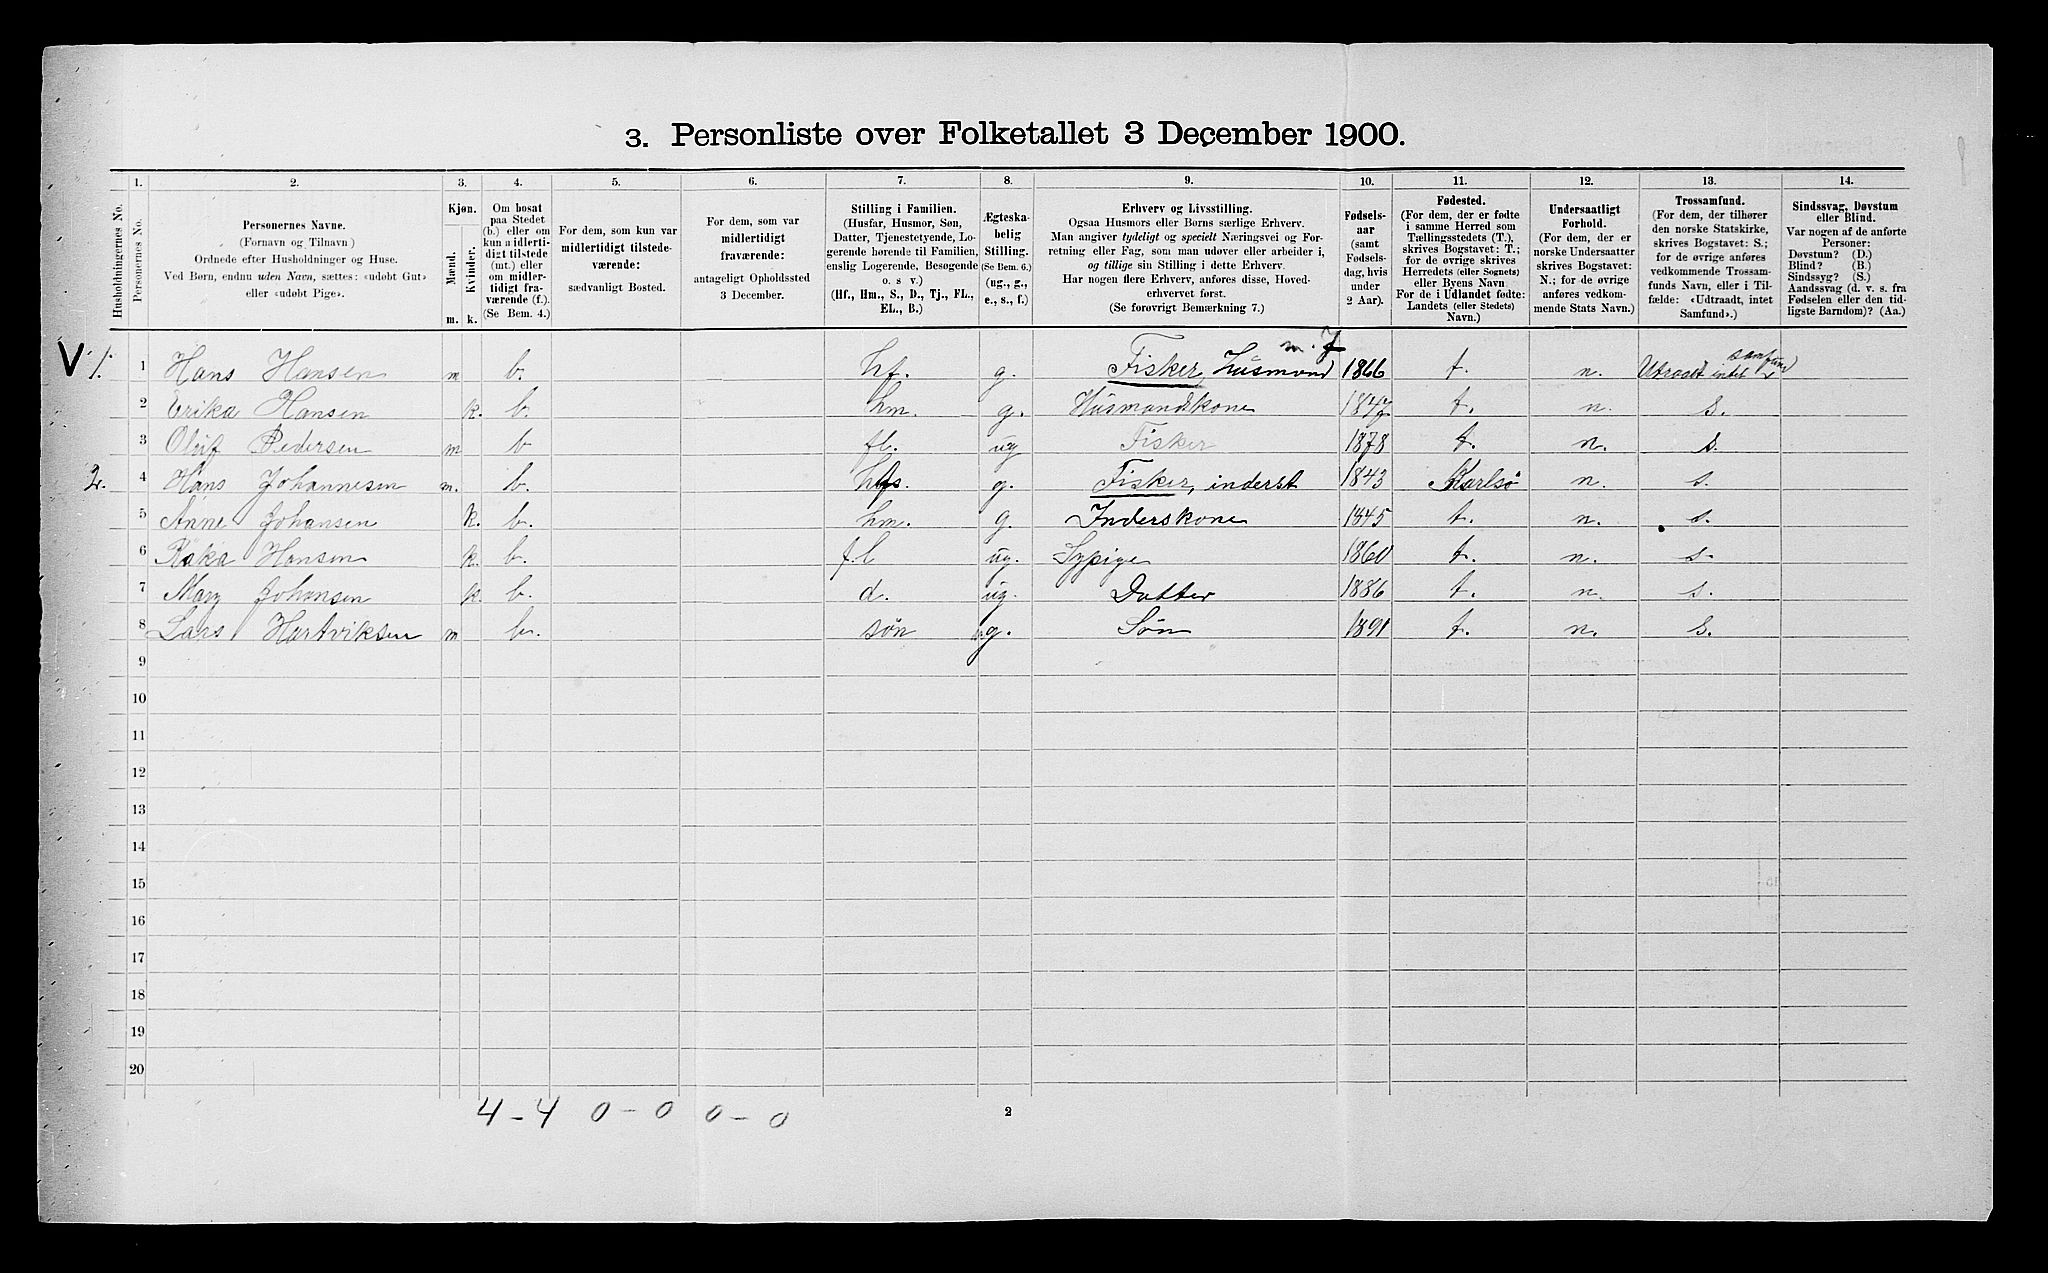 3. Personliste over Folketallet 3 December 1900.
1. 2. 3. 4. 5. 6. 7. 8. 9. 10. 11. 12. 13. 14.
Husholdningernes No.
Personernes No.
Personernes Navne.
(Fornavn og Tilnavn)
Ordnede efter Husholdninger og Huse.
Ved Børn, endnu uden Navn, sættes: «udøbt Gut»
eller «udøbt Pige».
Kjøn.
Mænd.
Kvinder.
m. k.
Om bosat
paa Stedet
(b.) eller om
kun midlerti-
digt tilstede
(mt.) eller
om midler-
tidigt fra-
værende (f.).
(Se Bem. 4.)
For dem, som kun var
midlertidigt tilstede-
værende:
sædvanligt Bosted.
For dem, som var
midlertidigt
fraværende:
antageligt Opholdssted
3 December.
Stilling i Familien.
(Husfar, Husmor, Søn,
Datter, Tjenestetyende, Lo-
gerende hørende til Familien,
enslig Logerende, Besøgende
o. s v.)
(Hf., Hm., S., D., Tj., FL.,
EL., B.)
Ægteska-
belig
Stilling.
(Se Bem. 6.)
(ug., g.,
e., s., f.)
Erhverv og Livsstilling.
Ogsaa Husmors eller Børns særlige Erhverv.
Man angiver tydeligt og specielt Næringsvei og For-
retning eller Fag, som man udøver eller arbeider i,
og tillige sin Stilling i dette Erhverv.
Har nogen flere Erhverv, anføres disse, Hoved-
erhvervet først.
(Se forøvrigt Bemærkning 7.)
Fødsels-
aar
(samt
Fødsels-
dag, hvis
under
2 Aar).
Fødested.
(For dem, der er fødte
i samme Herred som
Tællingsstedets (T.),
skrives Bogstavet: T.;
for de øvrige skrives
Herredets (eller Sognets)
eller Byens Navn
For de i Udlandet fødte:
Landets (eller Stedets)
Navn.)
Undersaatligt
Forhold.
(For dem, der er
norske Undersaatter
skrives Bogstavet:
N.; for de øvrige
anføres vedkom-
mende Stats Navn.)
Trossamfund.
(For dem, der tilhører
den norske Statskirke,
skrives Bogstavet: S.;
for de øvrige anføres
vedkommende Trossam-
funds Navn, eller i Til-
fælde: «Udtraadt, intet
Samfund».)
Sindssvag, Døvstum
eller Blind.
Var nogen af de anførte
Personer:
Døvstum? (D.)
Blind? (B.)
Sindssyg? (S.)
Aandssvag (d. v. s. fra
Fødselen eller den tid-
ligste Barndom)? (Aa.)
V 1. 1 Hans Hansen m b. hf. g. Fisker, Husmand m. J 1866 t. n. Utraadt intet samfund
2 Erika Hansen k. b. hm. g. Husmandskone 1847 t. n. s.
3 Oluf Pedersen m b fl. ug Fisker 1878 t. n. s.
2. 4 Hans Johannesen m. b. g. Fisker, inderst 1843 Karlsø n. s.
5 Anne Johansen k. b. hm. g. Inderskone 1845 t. n. s.
6 Hansen k. b. f.l ug. Sypige 1860 t. n. s.
7 Mary Johansen k. b. d. ug. Datter 1886 t. n. s.
8 Lars Hartviksen m b. søn ug. Søn 1891 t. n. s.
9
10
11
12
13
14
15
16
17
18
19
20
4-4 0-0 0-0
2